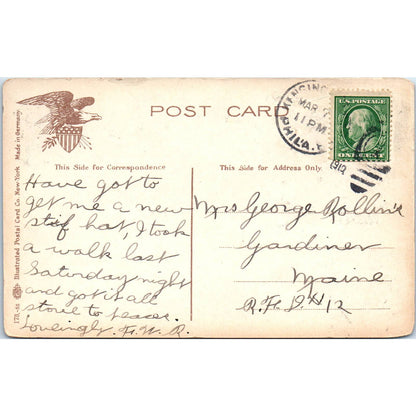 POST CARD
KENSINGTON
MAR
11 PM
PHILA.
1912
U.S. POSTAGE
ONE CENT
This Side for Correspondence
This Side for Address Only.
Have got to
get me a new
stif hat, I took
a walk last
Saturday night
and got it all
stove to peaces.
Loveingly. F. W. R.
Mrs George Rollins
Gardiner
Maine
R. F. D. # 12
Illustrated Postal Card Co. New-York Made in Germany